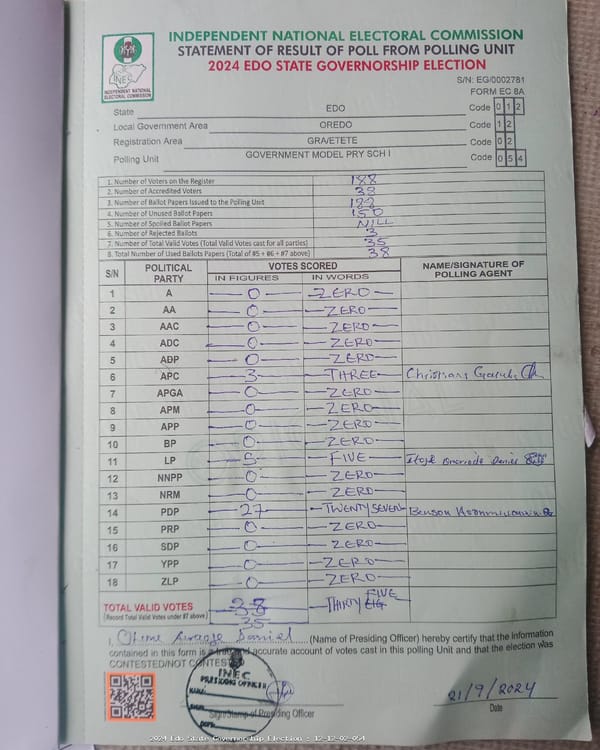 INDEPENDENT NATIONAL ELECTORAL COMMISSION
STATEMENT OF RESULT OF POLL FROM POLLING UNIT
2024 EDO STATE GOVERNORSHIP ELECTION
INEC
INDEPENDENT NATIONAL ELECTORAL COMMISSION
S/N: EG/0002781
FORM EC 8A
State EDO Code 0 1 2
Local Government Area OREDO Code 1 2
Registration Area GRA/ETETE Code 0 2
Polling Unit GOVERNMENT MODEL PRY SCH I Code 0 5 4
1. Number of Voters on the Register 188
2. Number of Accredited Voters 38
3. Number of Ballot Papers Issued to the Polling Unit 188
4. Number of Unused Ballot Papers 150
5. Number of Spoiled Ballot Papers NILL
6. Number of Rejected Ballots 3
7. Number of Total Valid Votes (Total Valid Votes cast for all parties) 35
8. Total Number of Used Ballots Papers (Total of #5 + #6 + #7 above) 38
S/N POLITICAL PARTY VOTES SCORED NAME/SIGNATURE OF POLLING AGENT
IN FIGURES IN WORDS
1 A 0 ZERO
2 AA 0 ZERO
3 AAC 0 ZERO
4 ADC 0 ZERO
5 ADP 0 ZERO
6 APC 3 THREE
7 APGA 0 ZERO
8 APM 0 ZERO
9 APP 0 ZERO
10 BP 0 ZERO
11 LP 5 FIVE
12 NNPP 0 ZERO
13 NRM 0 ZERO
14 PDP 27 TWENTY SEVEN Benson
15 PRP 0 ZERO
16 SDP 0 ZERO
17 YPP 0 ZERO
18 ZLP 0 ZERO
TOTAL VALID VOTES 38 THIRTY FIVE
(Record Total Valid Votes under #7 above) 35
I, Daniel (Name of Presiding Officer) hereby certify that the information
contained in this form is a true and accurate account of votes cast in this polling Unit and that the election was
CONTESTED/NOT CONTESTED
INEC
PRESIDING OFFICER
NAME:
SIGN:
DATE:
Sign/Stamp of Presiding Officer
21/9/2024
Date
2024 Edo State Governorship Election : 12-12-02-054